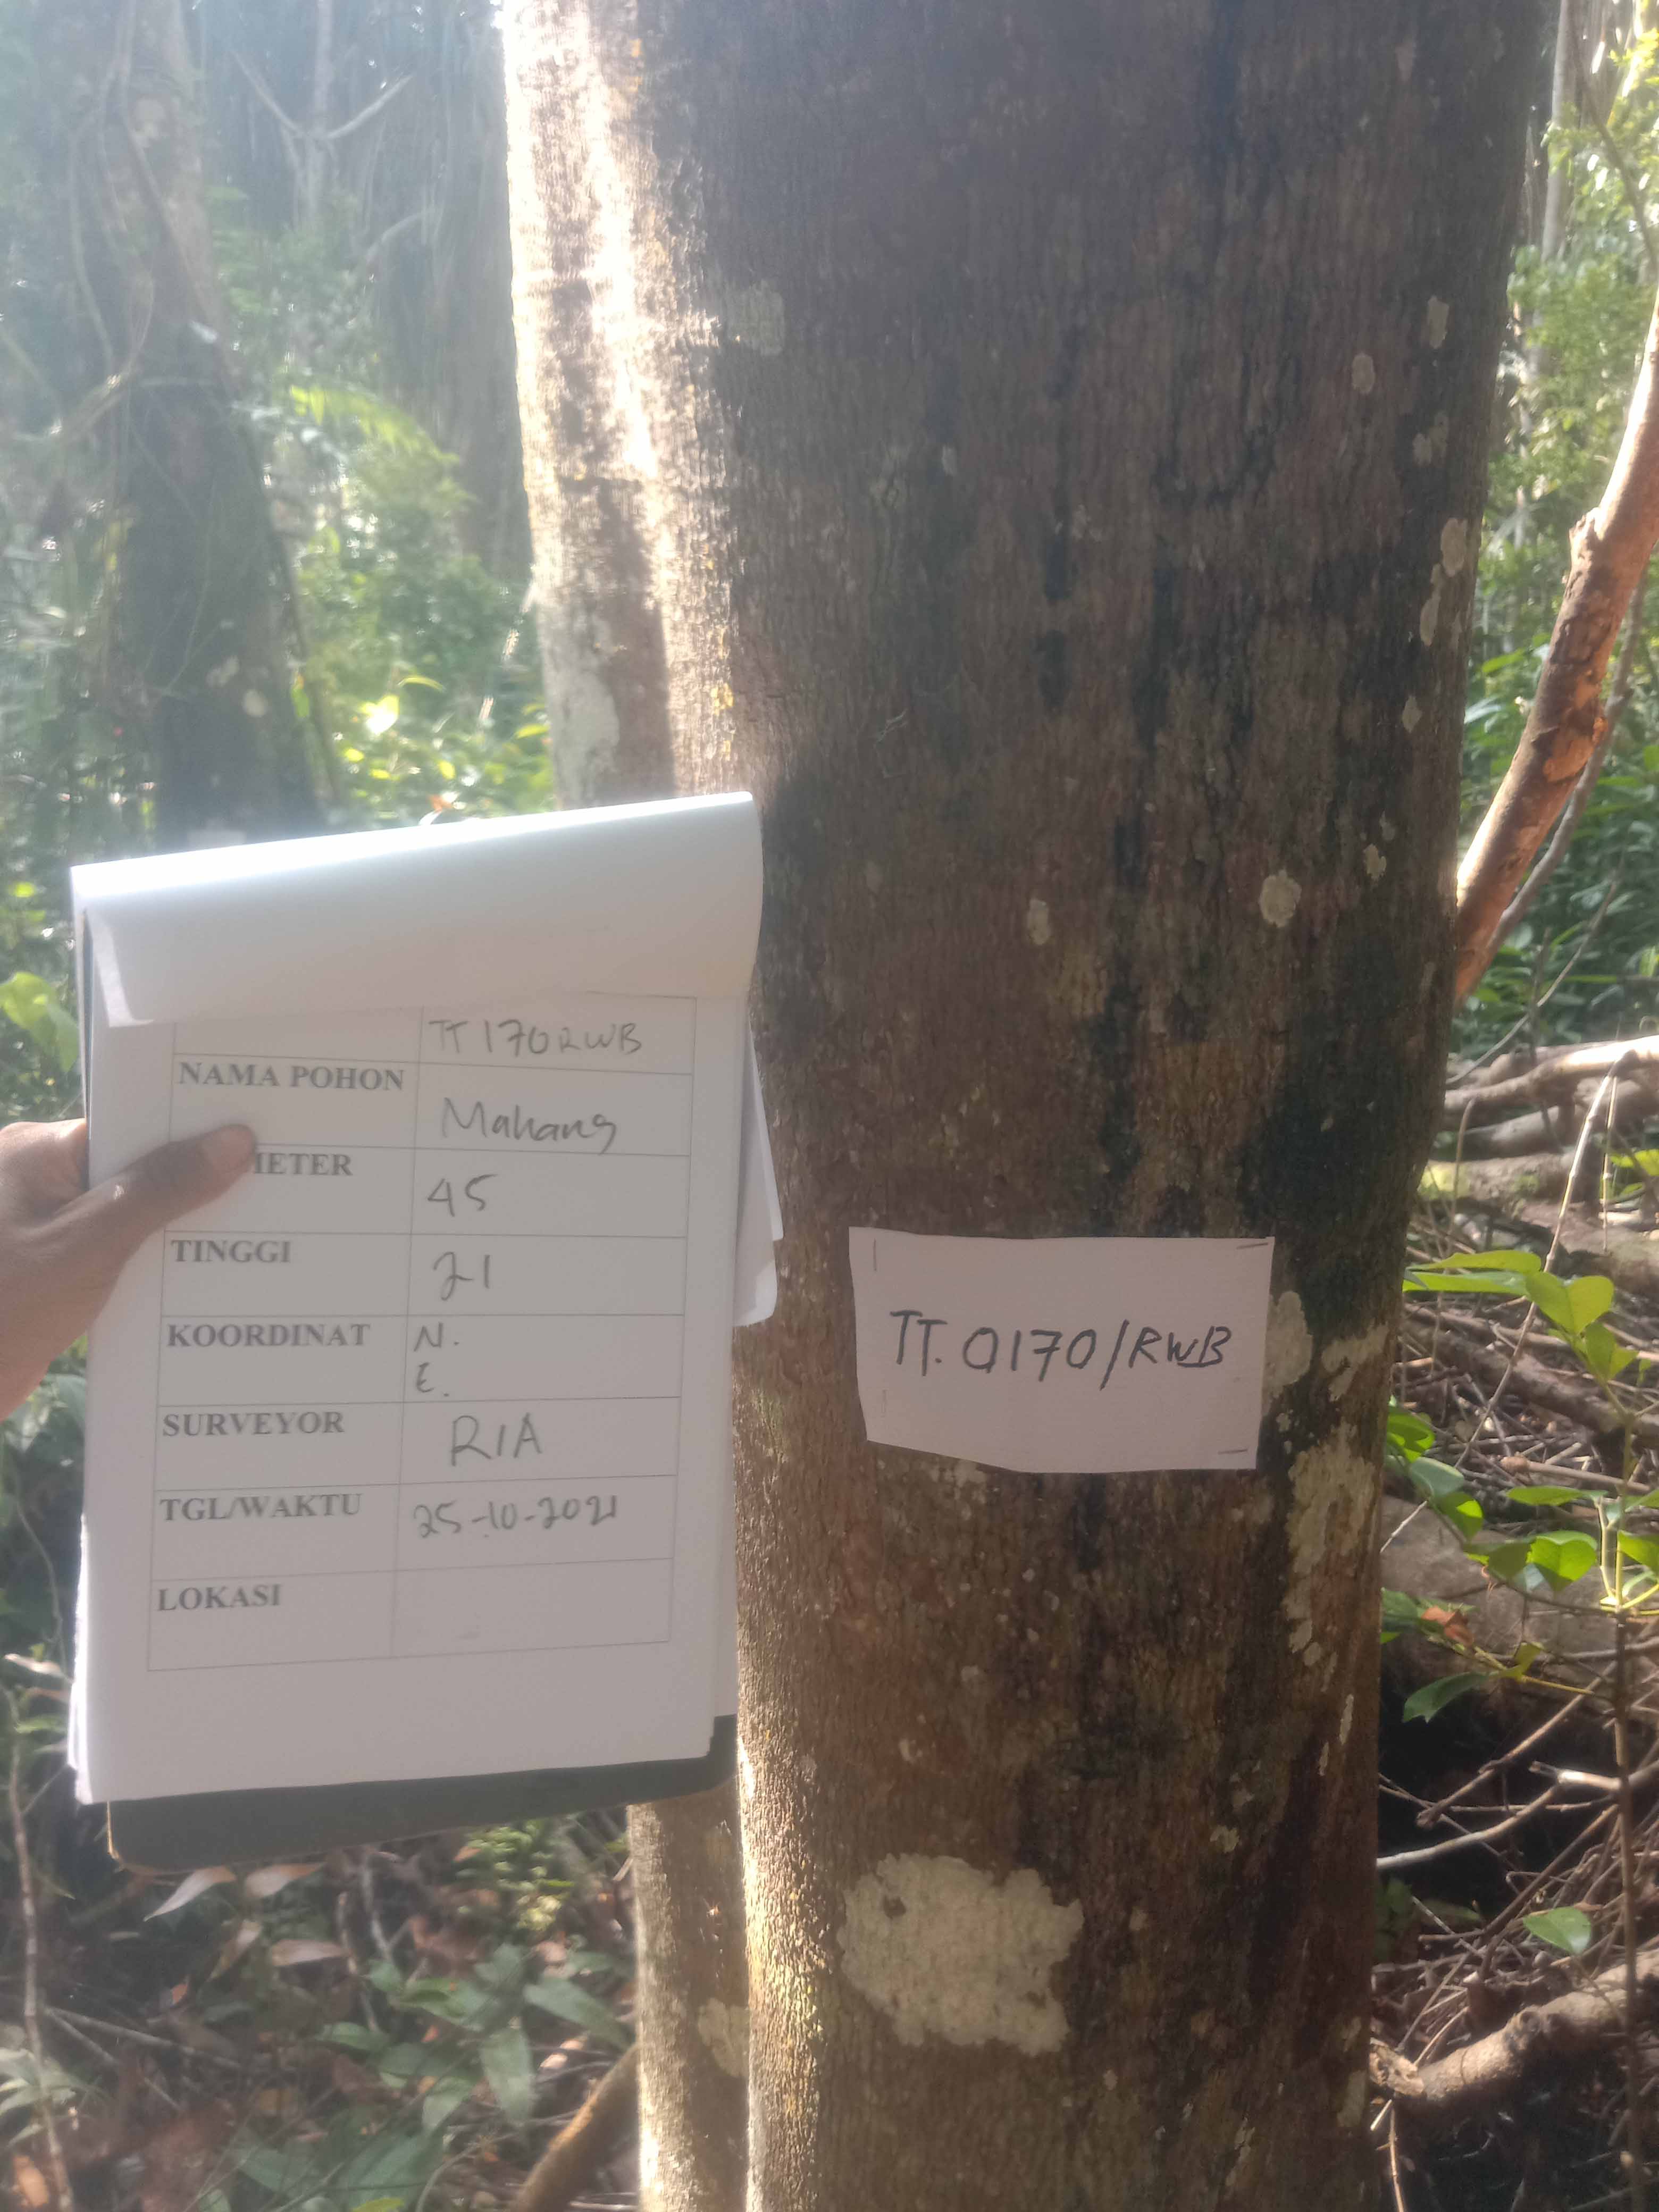 TT 170 RWB
NAMA POHON
Mahang
METER
45
TINGGI
21
KOORDINAT
N.
E.
SURVEYOR
RIA
TGL/WAKTU
25-10-2021
LOKASI
TT. 0170/RWB